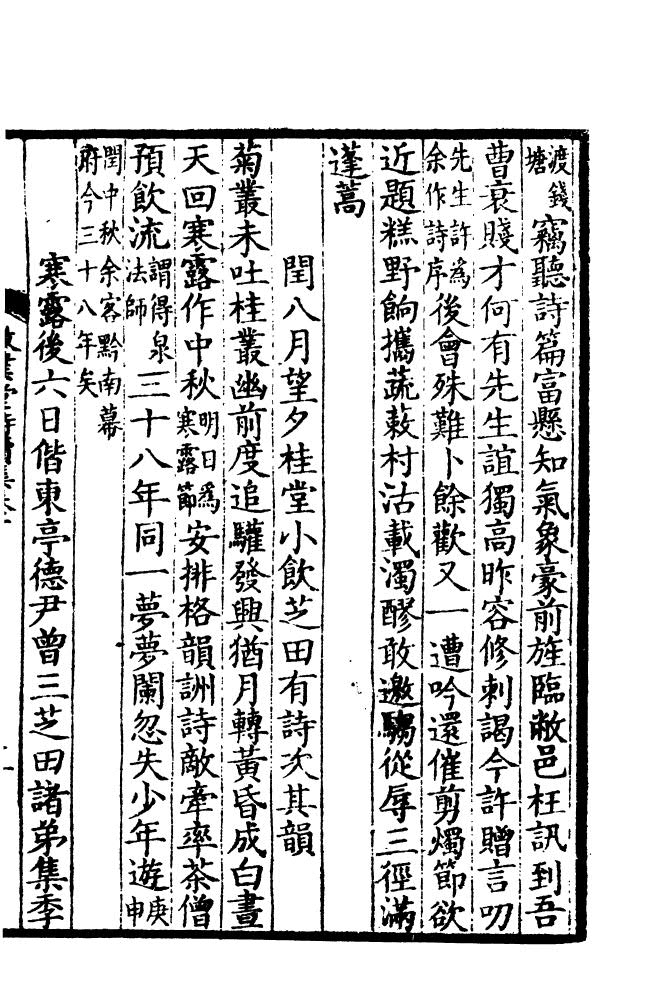 渡錢塘竊聽詩篇富懸知氣象豪前旌臨敝邑枉訊到吾
曹衰賤才何有先生誼獨高昨容修刺謁今許贈言叨
先生許為余作詩序後會殊難卜餘歡又一遭吟還催剪燭節欲
近題糕野餉攜蔬蔌村沽載濁醪敢邀騶從辱三徑滿
蓬蒿
閏八月望夕桂堂小飲芝田有詩次其韻
菊叢未吐桂叢幽前度追驩發興猶月轉黃昏成白晝
天回寒露作中秋明日為寒露節安排格韻詶詩敵牽率茶僧
預飲流謂得泉法師三十八年同一夢夢闌忽失少年遊庚申
閏中秋余客黔南幕府今三十八年矣
寒露後六日偕東亭德尹曾三芝田諸弟集季